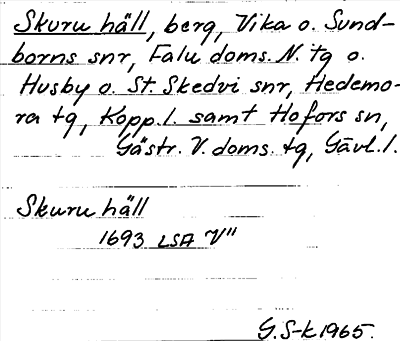 Skuru häll, berg, Vika o. Sund-
borns snr, Falu doms. N. tg o.
Husby o. St. Skedvi snr, Hedemo-
ra tg, Kopp. l. samt Hofors sn,
Gästr. V. doms. tg, Gävl. l.
Skuru häll
1693 LSA V"
G. S-k 1965.